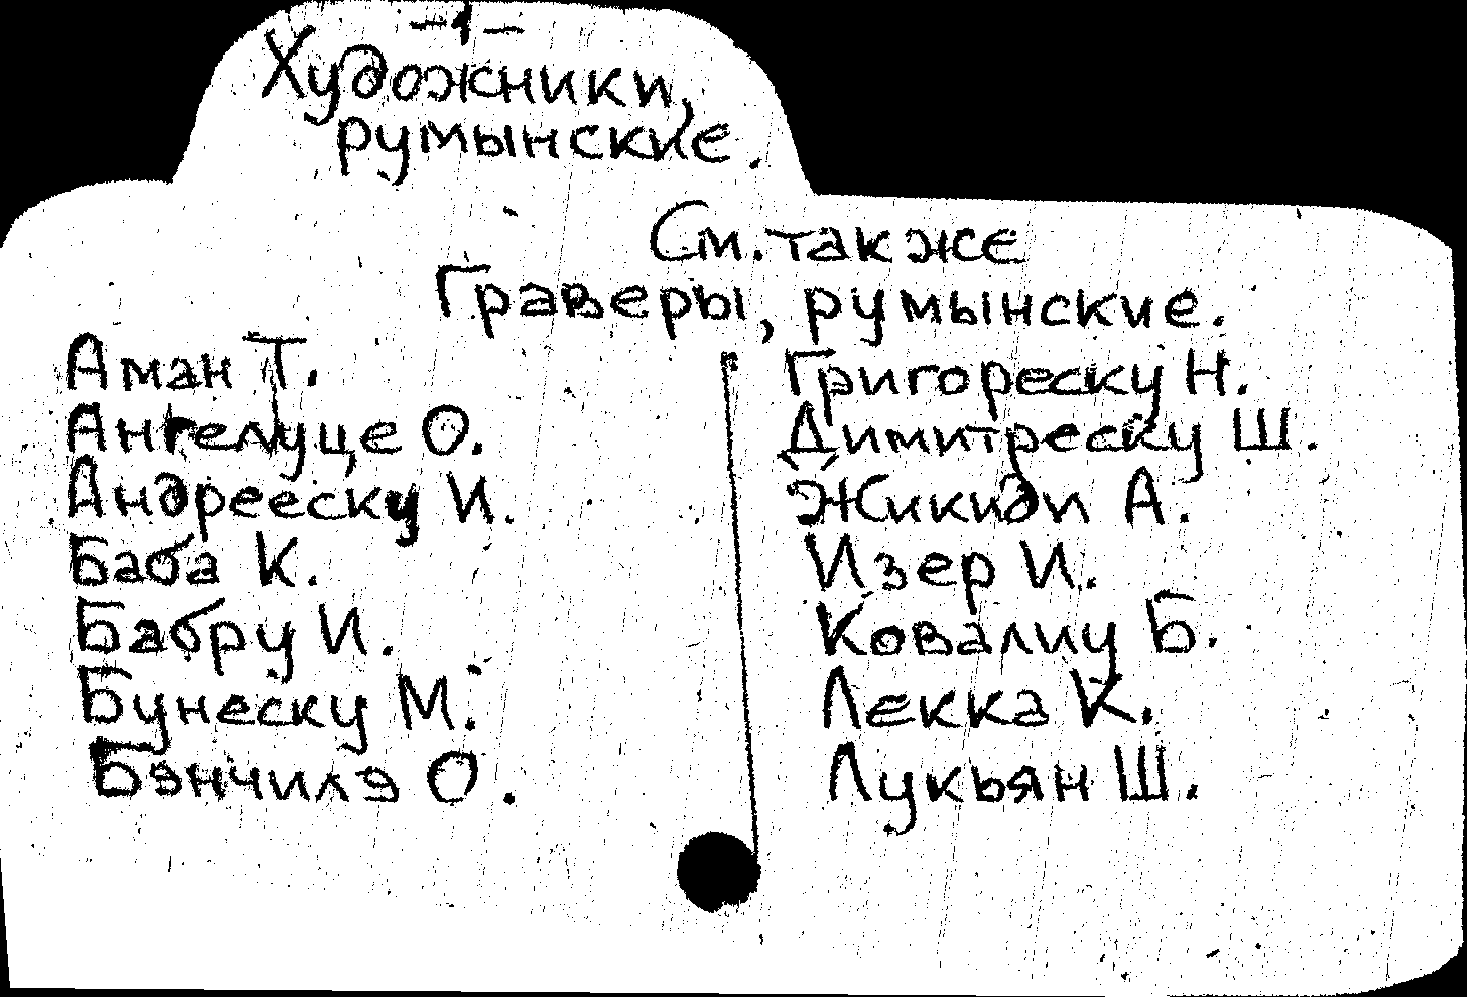 -1-
Художники,
румынские.
См. также
Граверы, румынские.
Аман Т.
Ангелуце О.
Андрееску И.
Баба К.
Бабру И.
Бунеску М.
Бэнчилэ О.
Григореску Н.
Димитреску Ш.
Жикиди А.
Изер И.
Ковалиу Б.
Лекка К.
Лукьян Ш.